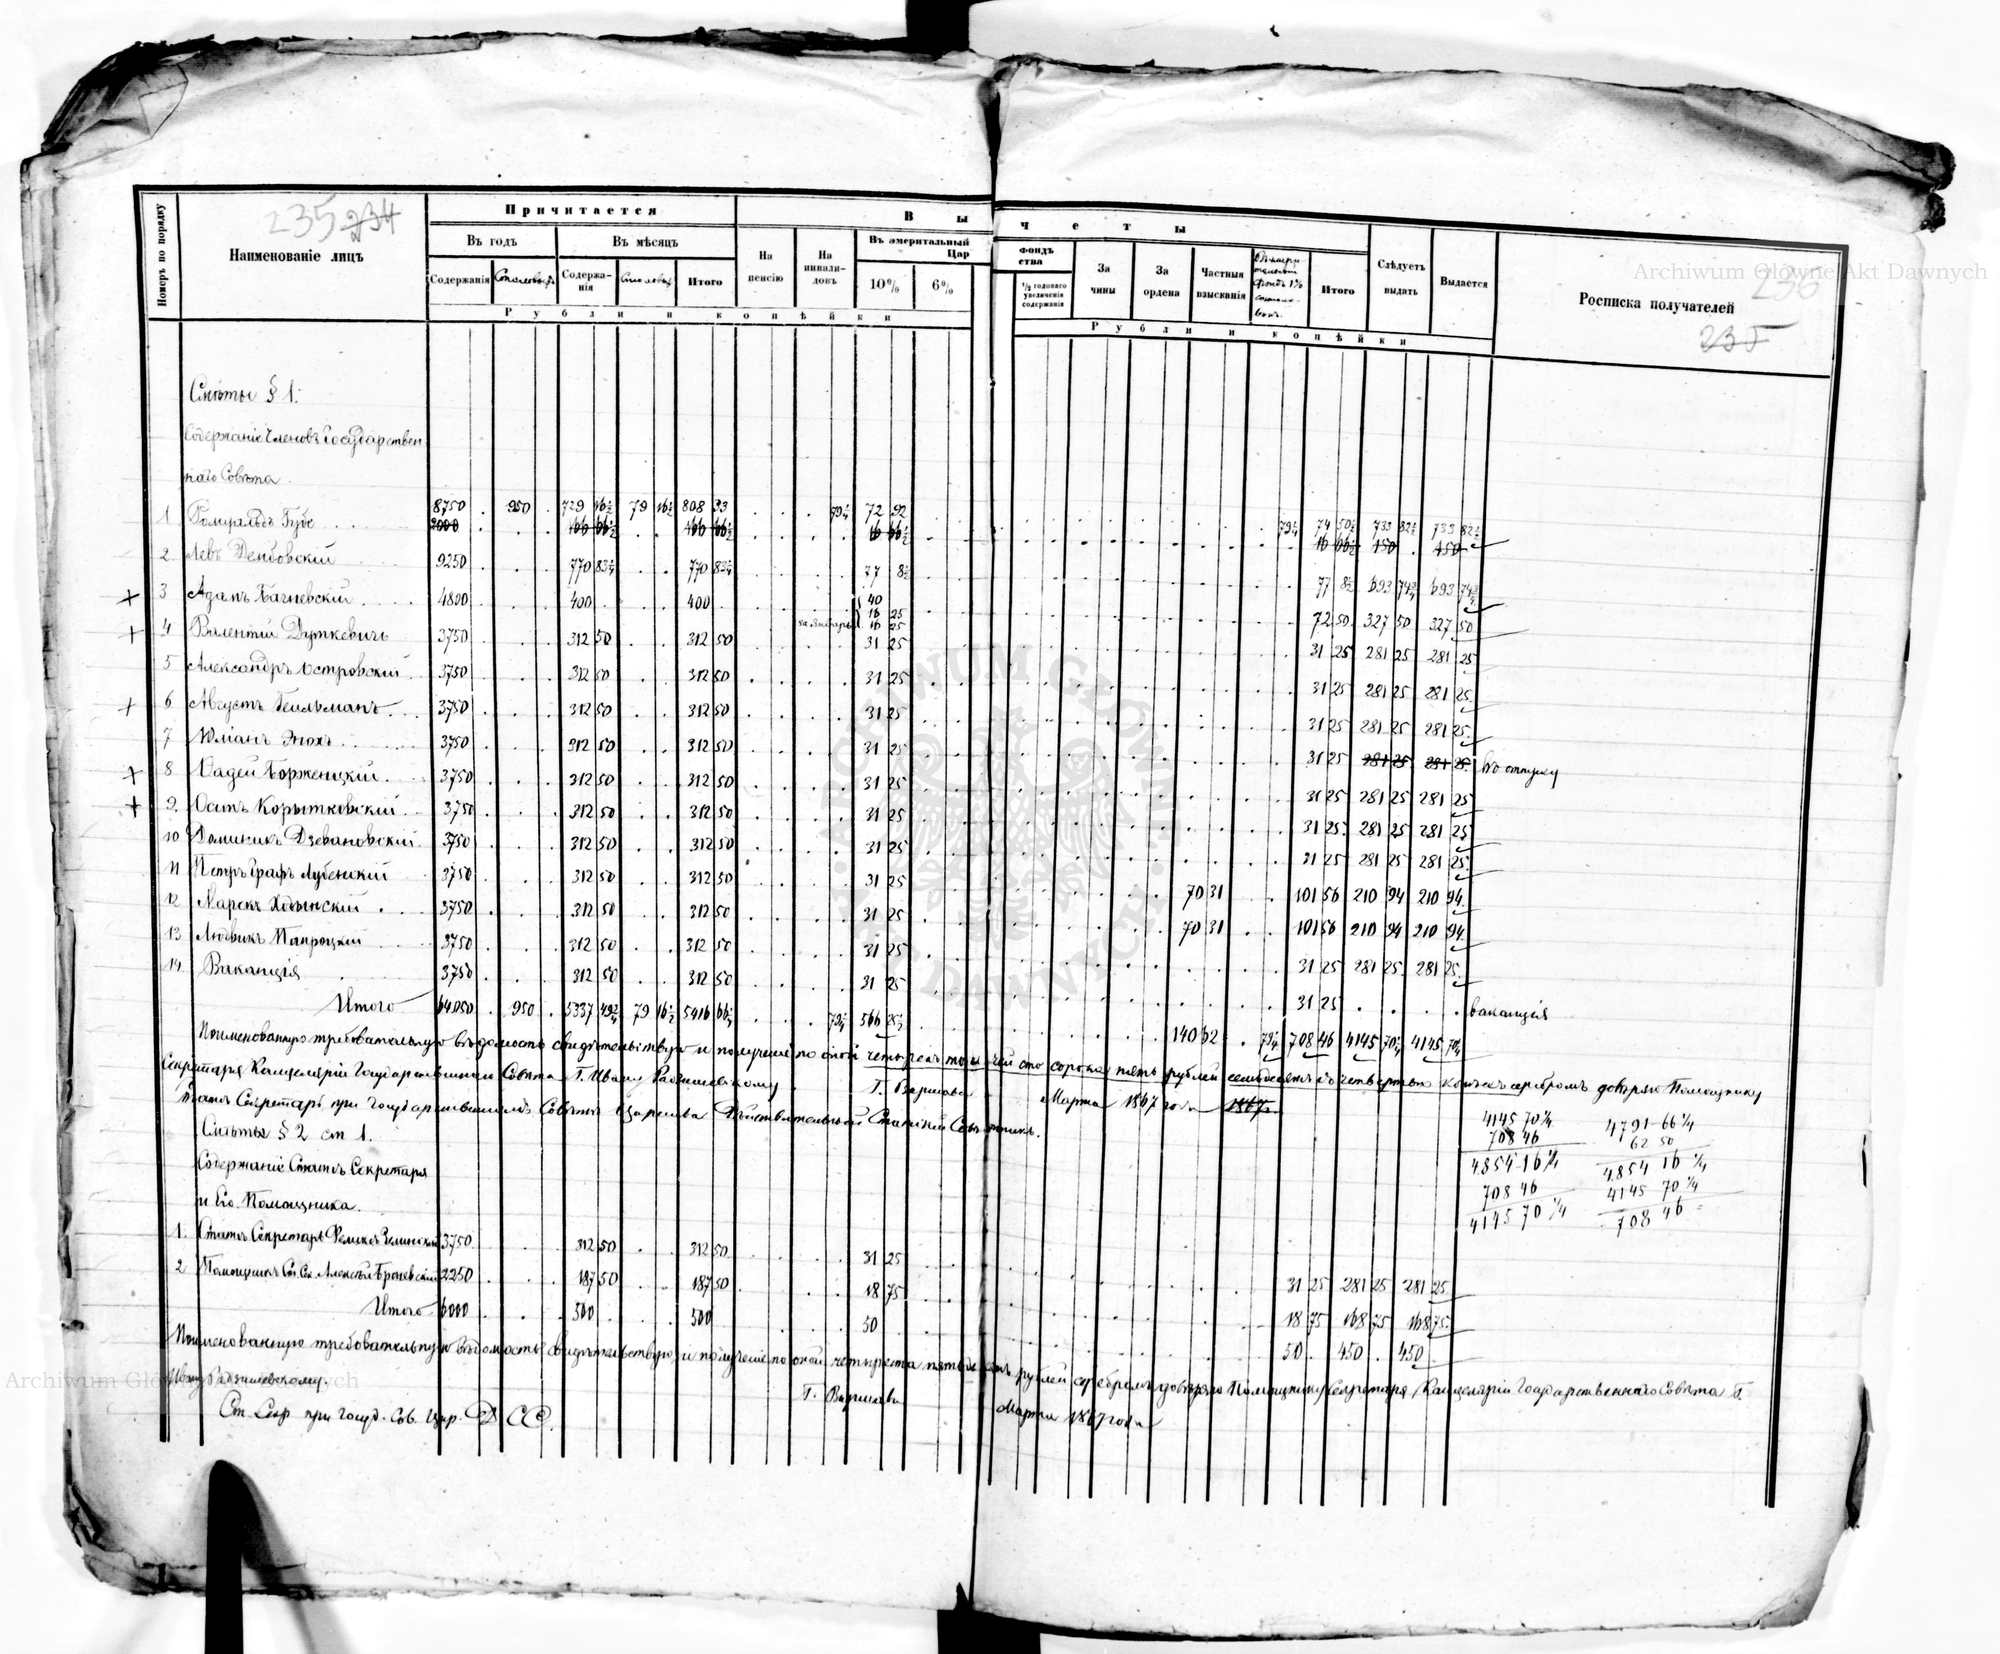 235 234
Номеръ по порядку
Наименованіе лицъ
Причитается
Въ годъ
Въ мѣсяцъ
Содержанія
Столовыхъ
Содержа-
нія
Столовыхъ
Итого
Вычеты
На
пенсію
На
инвали-
довъ
Въ эмеритальный фондъ
Царства
10%
6%
1/2 годоваго
увеличенія
содержанія
За
чины
За
ордена
Частныя
взысканія
Итого
Слѣдуетъ
выдать
Выдается
Росписка получателей
236
235
Рубли и копѣйки
Рубли и копѣйки
Смѣты § 1.
Содержаніе Членовъ Государствен
наго Совѣта
1 Ромуальдъ Губе 8750 . 950 . 729 16½ 79 16½ 808 33 79¼ 72 92 79¼ 74 50½ 733 82½ 733 82½
2000 166 66½ 166 66½ 16 66½ 16 66½ 150 150
2 Левъ Дембовскій 9250 770 83¼ 770 83¼ 77 8½ 77 8½ 693 74¾ 693 74¾
3 Адамъ Багневскій 4800 400 400 40
16 25
за Январь 16 25 72 50 327 50 327 50
4 Валентій Дуткевичъ 3750 312 50 312 50 31 25 31 25 281 25 281 25
5 Александръ Островскій 3750 312 50 312 50 31 25 31 25 281 25 281 25
6 Августъ Гейльманъ 3750 312 50 312 50 31 25 31 25 281 25 281 25
7 Юліанъ Энохъ 3750 312 50 312 50 31 25 31 25 281 25 281 25 въ отпуску
8 Фадей Борженцкій 3750 312 50 312 50 31 25 31 25 281 25 281 25
9. Осипъ Корытковскій 3750 312 50 312 50 31 25 31 25 281 25 281 25
10 Доминикъ Дзевановскій 3750 312 50 312 50 31 25 31 25 281 25 281 25
11 Петръ Графъ Лубенскій 3750 312 50 312 50 31 25 70 31 101 56 210 94 210 94
12 Марекъ Ходынскій 3750 312 50 312 50 31 25 70 31 101 56 210 94 210 94
13 Людвикъ Папроцкій 3750 312 50 312 50 31 25 31 25 281 25 281 25
14. Ваканція 3750 312 50 312 50 31 25 31 25 ваканція
Итого 64050 . 950 . 5337 49¾ 79 16½ 5416 66¼ 79¼ 566 25½ 140 62 79¼ 708 46 4145 70¼ 4145 70¼
Поименованную требовательную вѣдомость свидѣтельствую и полученіе по оной четырехъ тысячей сто сорока пять рублей семьдесятъ съ четвертью копѣекъ серебромъ довѣряю Помощнику
Секретаря Канцеляріи Государственнаго Совѣта Г. Ивану Радзишевскому Г. Варшава Марта 1867 года 1867г.
Статсъ Секретарь при Государственномъ Совѣтѣ Царства Дѣйствительный Статскій Совѣтникъ.
4145 70¼
708 46
4854 16¼
708 46
4145 70¼
4791 66¼
62 50
4854 16¼
4145 70¼
708 46
Смѣты § 2 ст 1.
Содержаніе Статсъ Секретаря
и Его Помощника.
1. Статсъ Секретарь Феликсъ Зелинскій 3750 312 50 312 50 31 25 31 25 281 25 281 25
2 Помощникъ Ст. Се. Алексѣй Броневскій 2250 187 50 187 50 18 75 18 75 168 75 168 75
Итого 6000 500 500 50 50 450 450
Поименованную требовательную вѣдомость свидѣтельствую и полученіе по оной четыреста пятьдесятъ рублей серебромъ довѣряю Помощнику Секретаря Канцеляріи Государственнаго Совѣта Г.
Ивану Радзишевскому. Г. Варшава Марта 1867 года
Ст. Секр при Госуд. Сов. Цар. ДСС.
Archiwum Główne Akt Dawnych
Archiwum Główne Akt Dawnych
ARCHIWUM GŁÓWNE AKT DAWNYCH